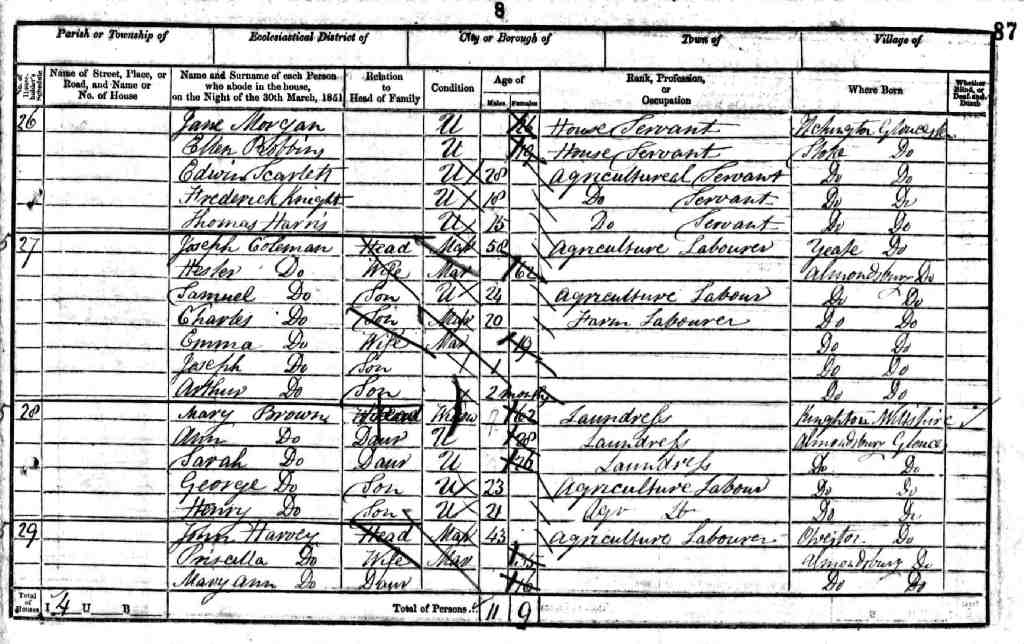 8
87
Parish or Township of Ecclesiastical District of City or Borough of Town of Village of
No. of House-holder's Schedule Name of Street, Place, or Road, and Name or No. of House Name and Surname of each Person who abode in the house, on the Night of the 30th March, 1851 Relation to Head of Family Condition Age of Males Females Rank, Profession, or Occupation Where Born Whether Blind, or Deaf-and-Dumb
26 Jane Morgan U 26 House Servant Itchington
Ellen Robbins U 19 House Servant Stoke Do
Edwin Scarlett U 28 Agricultureal Servant Do Do
Frederick Knight U 18 Do Servant Do Do
Thomas Harris U 15 Do Servant Do Do
27 Joseph Coleman Head Mar 58 Agriculture Labourer Do
Hester Do Wife Mar 62 Almondsbury Do
Samuel Do Son U 24 Agriculture Labour Do Do
Charles Do Son Mar 20 Farm Labourer Do Do
Emma Do Wife Mar 19 Do Do
Joseph Do Son 1 Do Do
Arthur Do Son 2 months Do Do
28 Mary Brown Widow 62 Laundress Wiltshire
Ann Do Daur U 28 Laundress Almondsbury
Sarah Do Daur U 26 Laundress Do Do
George Do Son U 23 Agriculture Labour Do Do
Henry Do Son U 21 Do Do
29 John Harvey Head Mar 43 Agriculture Labourer Olveston Do
Priscilla Do Wife Mar 35 Almondsbury Do
Mary Ann Do Daur 16 Do Do
Total of Houses I 4 U B Total of Persons 11 9